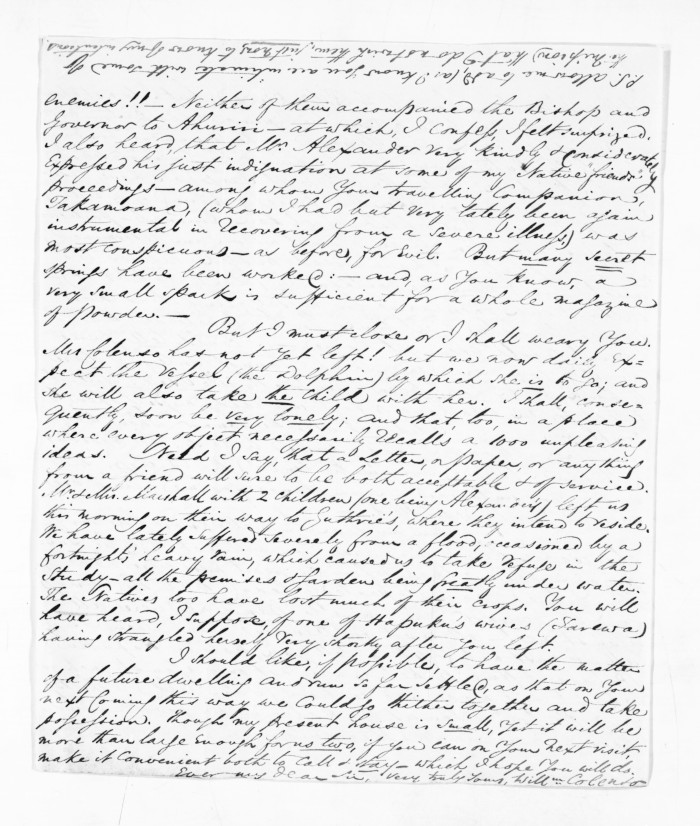 enemies!! — Neither of them accompanied the Bishop and
Governor to Ahuriri — at which, I confess, I felt surprized.
I also heard, that Mr. Alexander very kindly & considerately
expressed his just indignation at some of my "Native friends'"
proceedings — among whom Your travelling Companion,
Takamoana, (whom I had but very lately been again
instrumental in recovering from a severe illness,) was
most conspicuous — as before, for Evil. But many secret
springs have been worked: — and as You know, a
very small spark is sufficient for a whole magazine
of powder. —
But I must close or I shall weary You.
Mrs Colenso has not yet left! but we now daily ex=
pect the Vessel (the Dolphin) by which she is to go; and
she will also take the Child with her. I shall, conse=
quently, soon be very lonely; and that, too, in a place
where every object necessarily recalls a 1000 unpleasing
ideas. Need I say, that a Letter, or paper, or anything
from a friend will sure to be both acceptable & of service.
Mr & Mrs. Marshall with 2 children (one being Alexander's) left us
this morning on their way to Guthrie's, where they intend to reside.
We have lately suffered severely from a flood, occasioned by a
fortnight's heavy rain, which caused us to take refuge in the
Study — all the premises & Garden being greatly under water.
The Natives too have lost much of their crops. You will
have heard, I suppose, of one of Hapuku's wives (Tarewa)
having strangled herself very shortly after You left.
I should like, if possible, to have the matter
of a future dwelling and run so far settled, as that on Your
next coming this way we could go thither together and take
possession. Though my present house is small, yet it will be
more than large enough for us two, if You can on Your next visit,
make it convenient both to Call & stay — which I hope You will do.
Ever my dear Sir, Very truly Yours, Willm Colenso
P.S. Allow me to add (as I know You are intimate with some of
the Mission) that I do not wish them, just now, to know of my intentions.